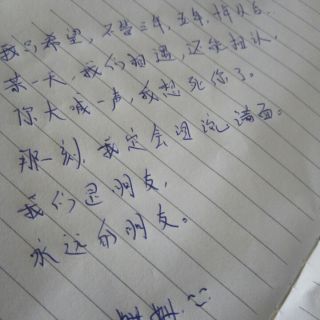 我只希望，不管三年，五年，或以后
某一天，我们相遇，还能相认，
你大喊一声，我想死你了。
那一刻，我定会泪流满面。
我们是朋友，
永远的朋友。